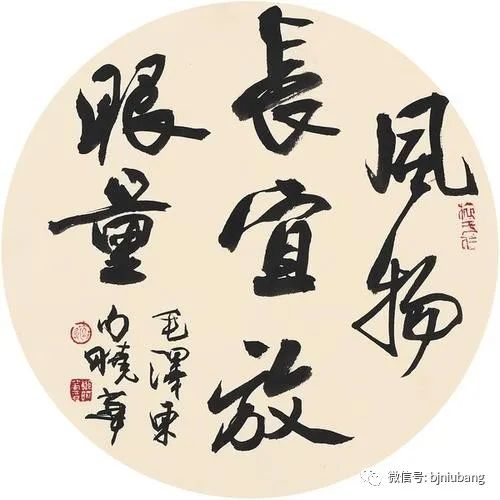 風物
長宜放
眼量
毛澤東
曉
微信号: bjniubang